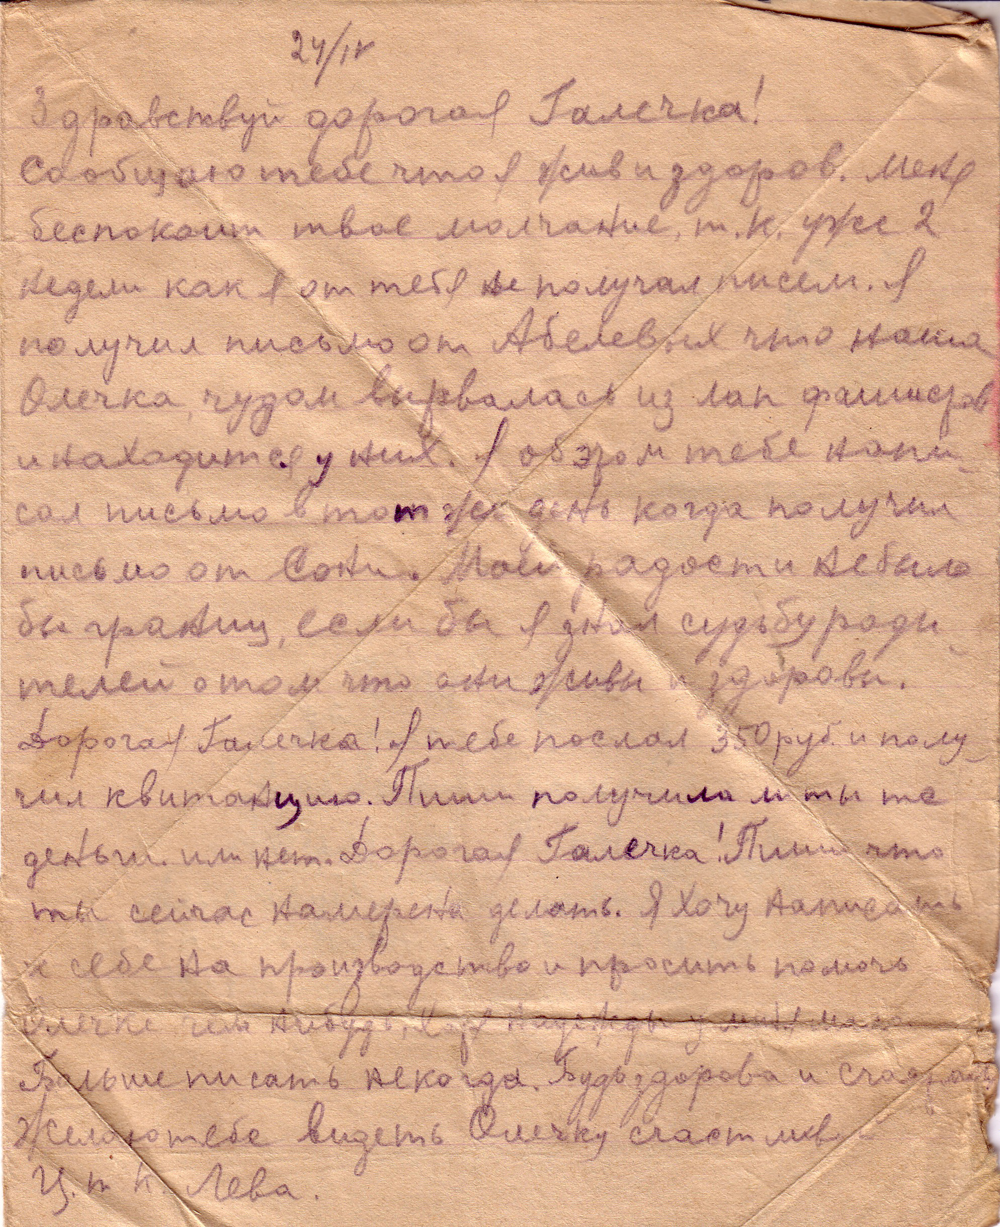 24/IV
Здравствуй дорогая Галечка!
Сообщаю тебе что я жив и здоров. Меня
беспокоит твое молчание, т.к. уже 2
недели как я от тебя не получал писем. Я
получил письмо от Абелевых что наша
Олечка, чудом вырвалась из лап фашистов
и находится у них. Я об этом тебе напи-
сал письмо в тот же день когда получил
письмо от Сони. Моей радости не было
бы границ, если бы я знал судьбу роди-
телей о том что они живы и здоровы.
Дорогая Галечка! Я тебе послал 350 руб. и полу-
чил квитанцию. Пиши получила ли ты те
деньги. или нет. Дорогая Галечка! Пиши что
ты сейчас намерена делать. Я хочу написать
к себе на производство и просить помочь
Олечке чем нибудь, хотя надежды у меня мало.
Больше писать некогда. Будь здорова и счастлива
Желаю тебе видеть Олечку счастливо
Ц. т. к. Лева.